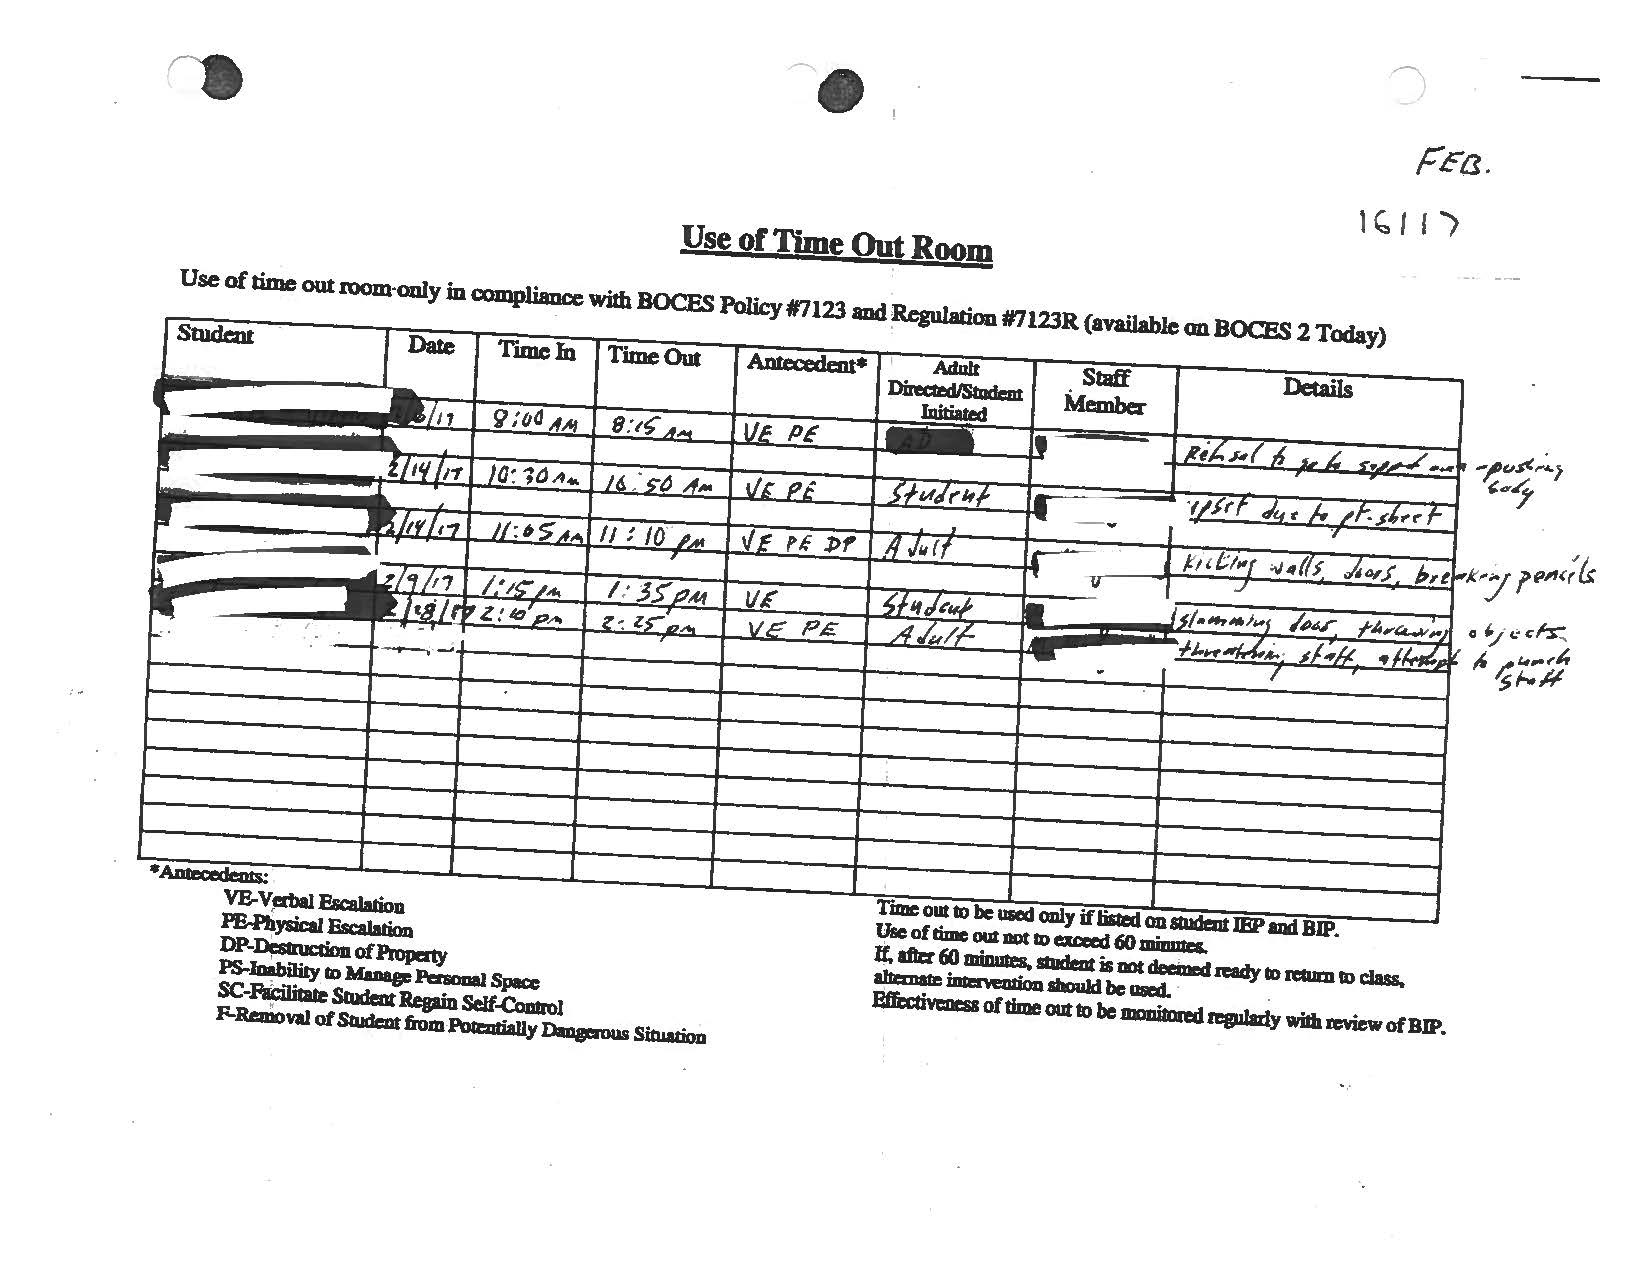 FEB.
16117
Use of Time Out Room
Use of time out room only in compliance with BOCES Policy #7123 and Regulation #7123R (available on BOCES 2 Today)
Student Date Time In Time Out Antecedent* Adult Directed/Student Initiated Staff Member Details
/17 8:00 AM 8:15 AM VE PE AD Refusal to go to support room - pushing body
2/14/17 10:30 Am 10:50 Am VE PE Student upset due to pt. sheet
2/14/17 11:05 AM 11:10 pm VE PE DP Adult kicking walls, doors, breaking pencils
2/9/17 1:15 pm 1:35 pm VE Student slamming door, throwing objects
2/28/17 2:10 pm 2:25 pm VE PE Adult threatening staff, attempt to punch staff
*Antecedents:
VE-Verbal Escalation
PE-Physical Escalation
DP-Destruction of Property
PS-Inability to Manage Personal Space
SC-Facilitate Student Regain Self-Control
F-Removal of Student from Potentially Dangerous Situation
Time out to be used only if listed on student IEP and BIP.
Use of time out not to exceed 60 minutes.
If, after 60 minutes, student is not deemed ready to return to class,
alternate intervention should be used.
Effectiveness of time out to be monitored regularly with review of BIP.